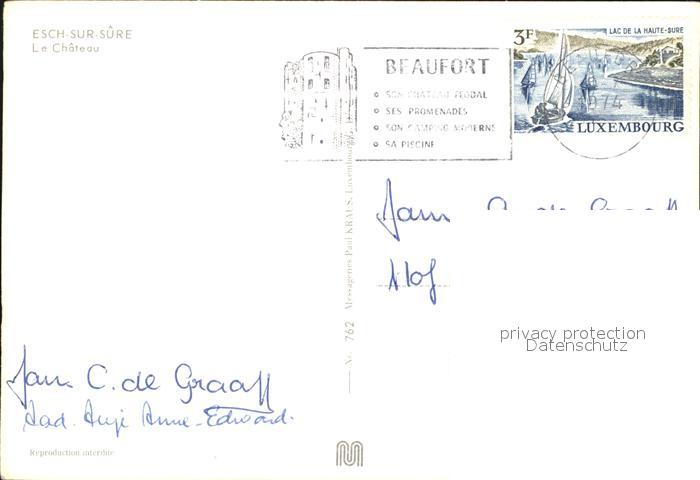 ESCH-SUR-SÛRE
Le Château
BEAUFORT
SON CHATEAU FEODAL
SES PROMENADES
SON CAMPING MODERNE
SA PISCINE
3F
LAC DE LA HAUTE-SURE
74
LUXEMBOURG
Fam C. de Graaff
Hof
privacy protection
Datenschutz
No. 762 Messageries Paul KRAUS, Luxembourg
Fam C. de Graaff
Anne-Edward.
Reproduction interdite